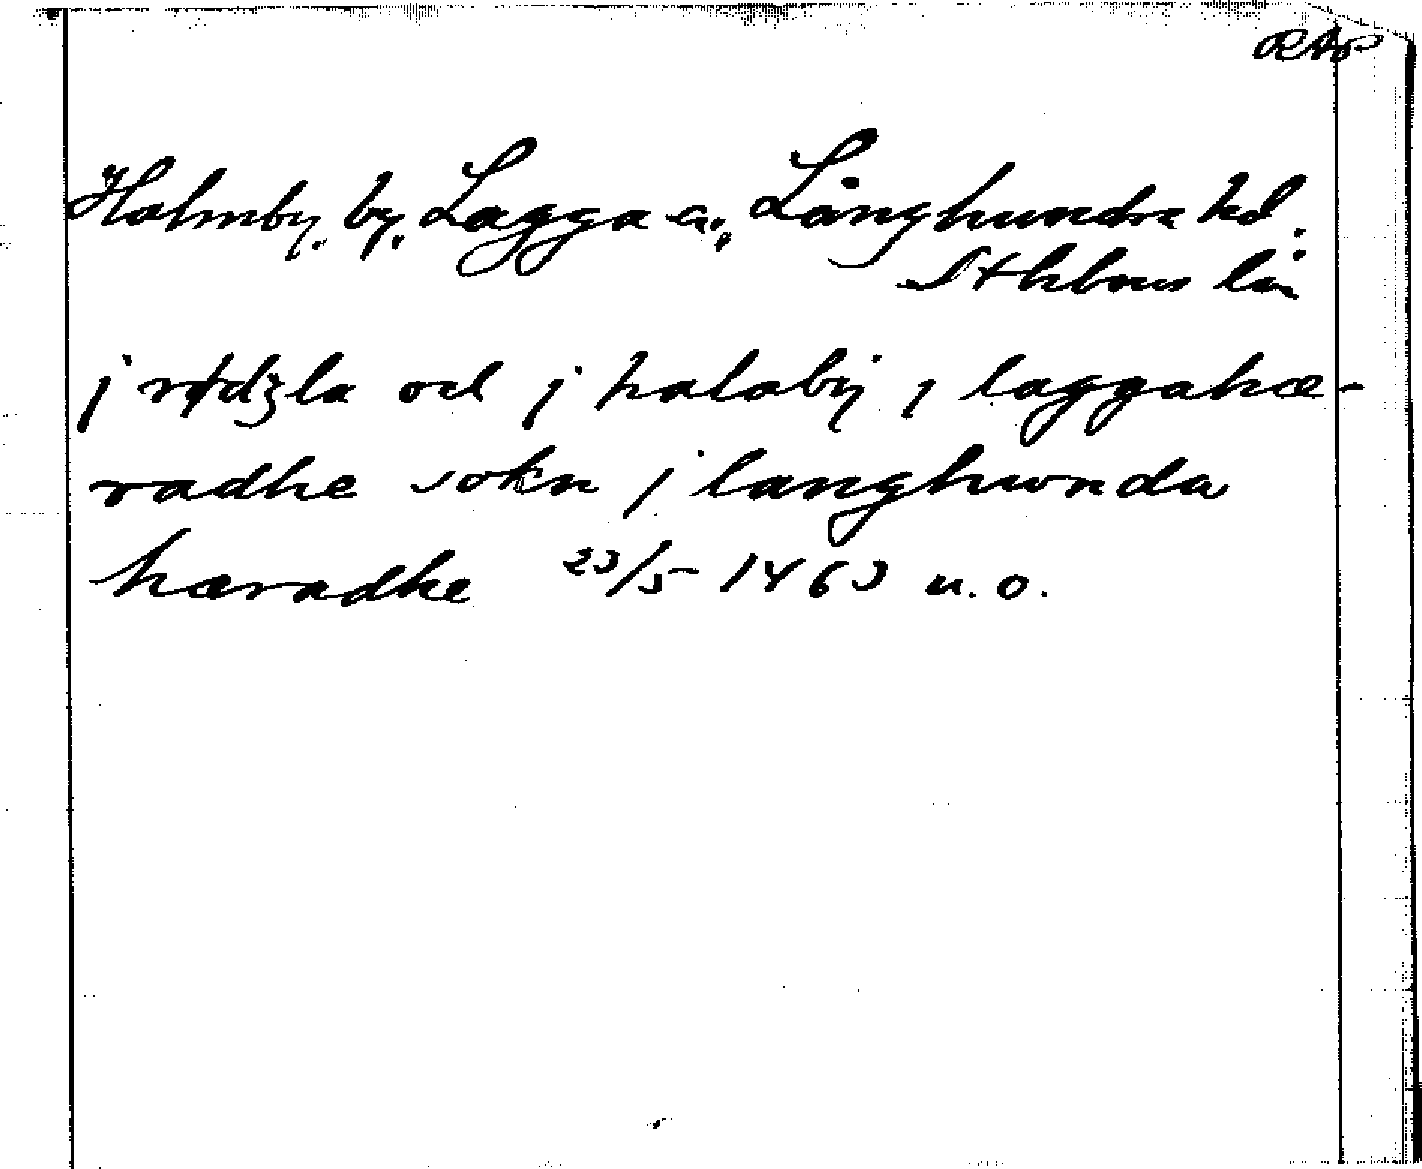 RAP
Holmby, by, Lagga sn, Långhundra hd.
Sthlms län
j rødzla ock j holabij j laggahæ-
radhe sokn j langhwnda
hæradhe 23/5 1463 u. o.